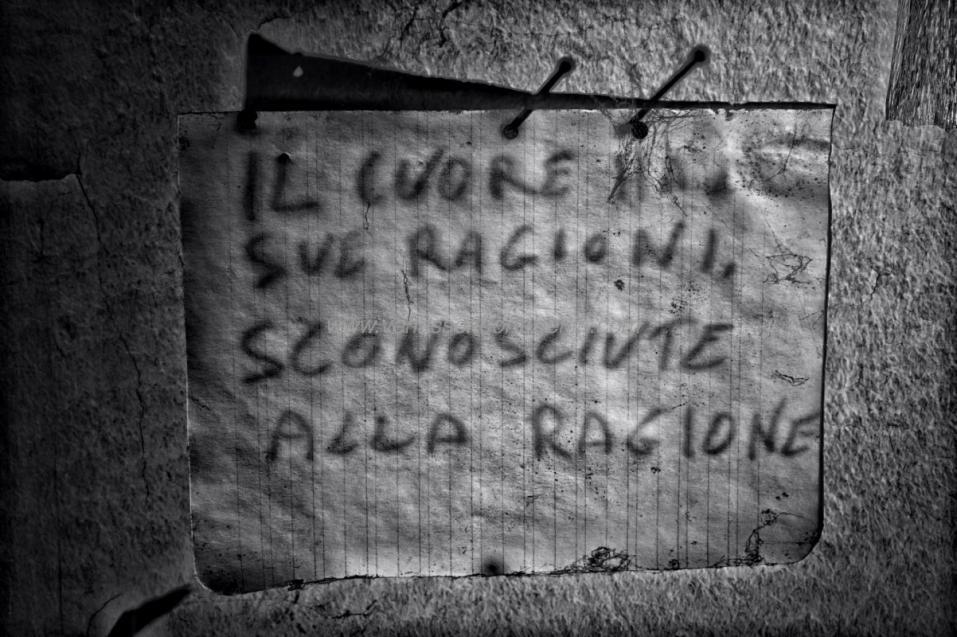 IL CUORE
SUE RAGIONI,
SCONOSCIUTE
ALLA RAGIONE